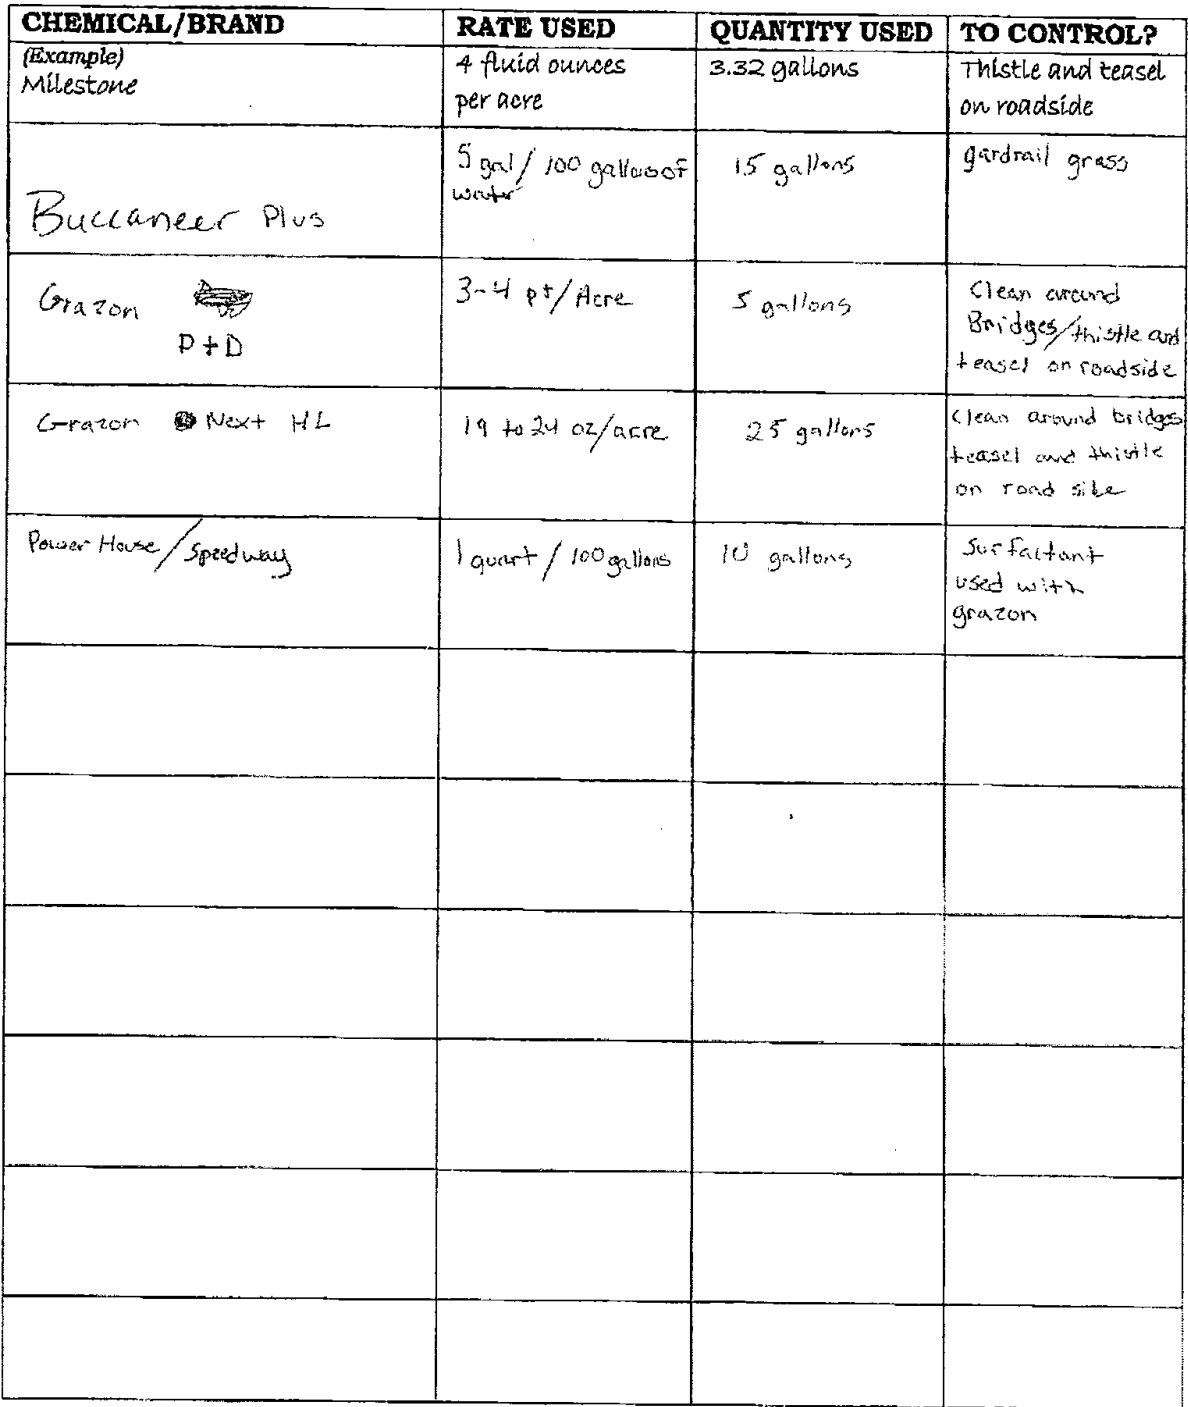 CHEMICAL/BRAND RATE USED QUANTITY USED TO CONTROL?
(Example)
Milestone
4 fluid ounces
per acre
3.32 gallons
Thistle and teasel
on roadside
Buccaneer Plus
5 gal/100 gallons of
water
15 gallons
gardrail grass
Grazon
P+D
3-4 pt/Acre
5 gallons
Clean around
Bridges/thistle and
teasel on roadside
Grazon Next HL
19 to 24 oz/acre
25 gallons
Clean around bridges
teasel and thistle
on road side
Power House/Speedway
1 quart/100 gallons
10 gallons
Surfactant
used with
grazon